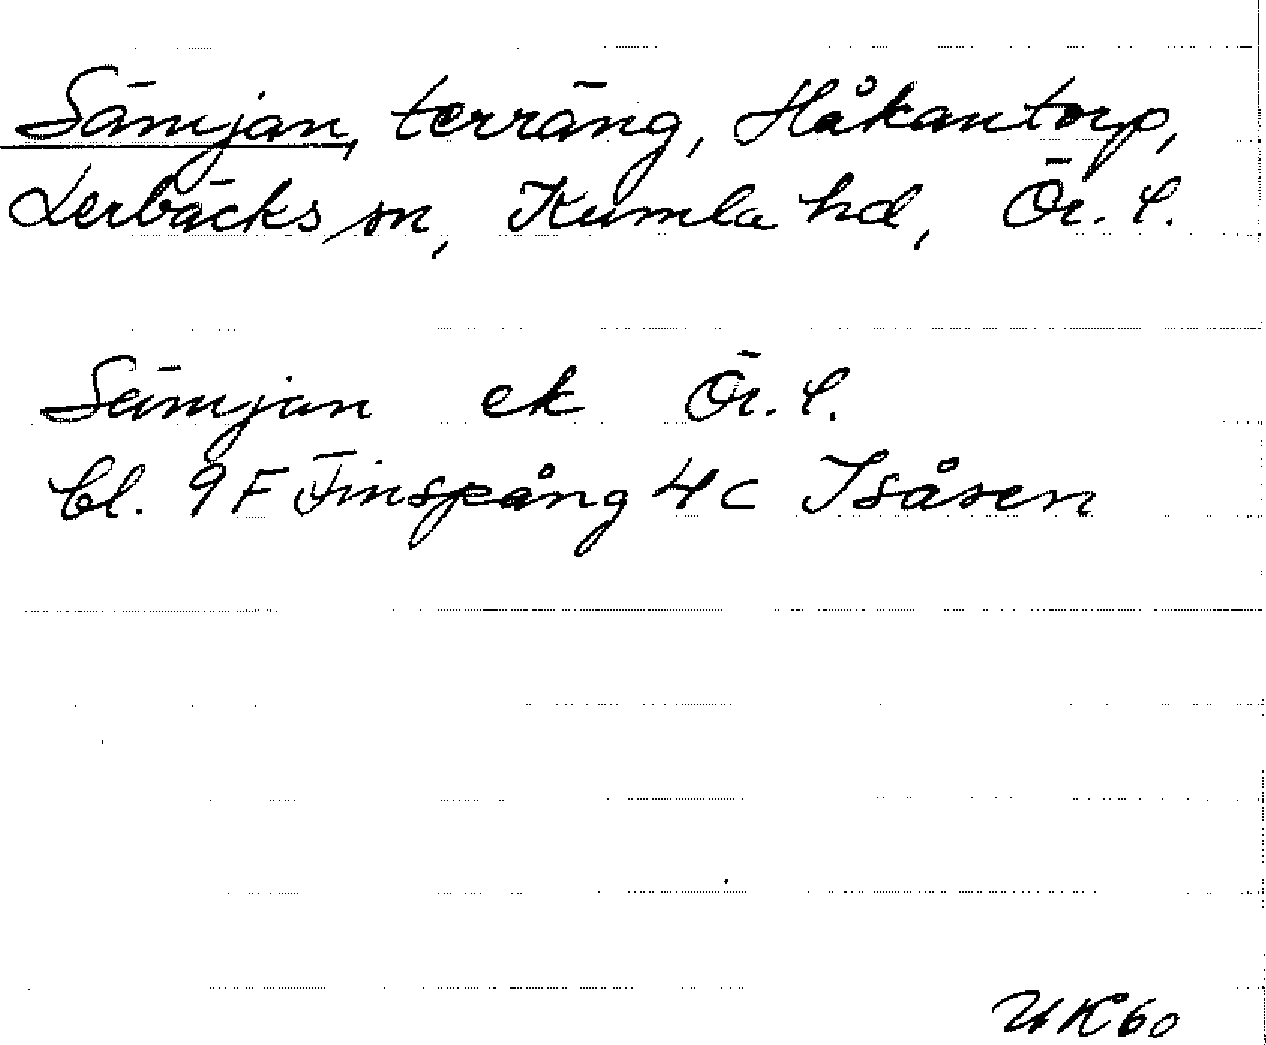 Sämjan, terräng, Håkantorp,
Lerbäcks sn, Kumla hd, Ör. l.
Sämjan ek Ör. l.
bl. 9F Finspång 4c Isåsen
UK 60